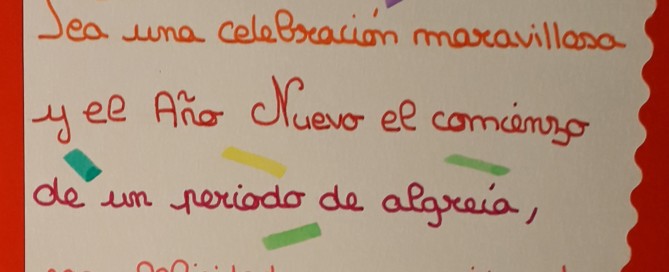 Sea una celebración maravillosa
y el Año Nuevo el comienzo
de un periodo de algreía,